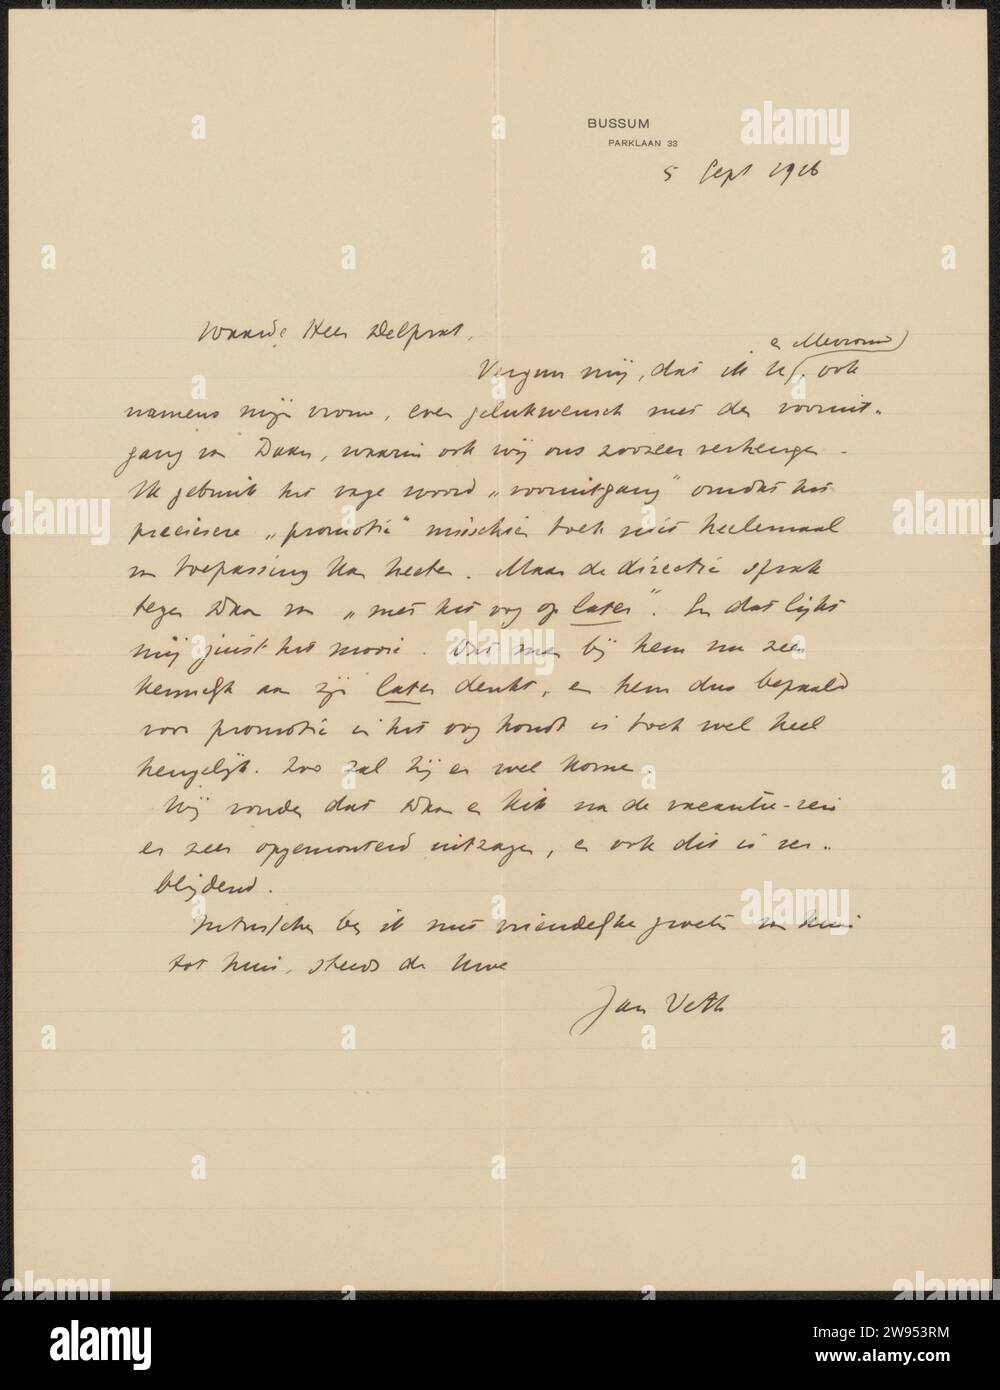 BUSSUM
PARKLAAN 33
5 Sept 1916
Waarde Heer Delprat,
en Mevrouw
Vergun mij, dat ik U, ook
namens mijn vrouw, even gelukwensch met den vooruit-
gang van Daan, waarin ook wij ons zoozeer verheugen.
Ik gebruik het vage woord „vooruitgang" omdat het
preciesere „promotie" misschien toch niet heelemaal
van toepassing kan heeten. Maar de directie sprak
tegen Daan van „met het oog op later". En dat lijkt
mij juist het mooie. Dat men bij hem nu zeer
kennelijk aan zijn later denkt, en hem dus bepaald
voor promotie in het oog houdt is toch wel heel
heugelijk. Zoo zal hij er wel komen.
Wij vonden dat Daan er hier na de vacantie-reis
er zeer opgemonterd uitzagen, en ook dit is ver-
blijdend.
Intusschen ben ik met vriendelijke groeten van huis
tot huis, steeds de Uwe
Jan Veth
alamy
Image ID: 2W953RM
www.alamy.com